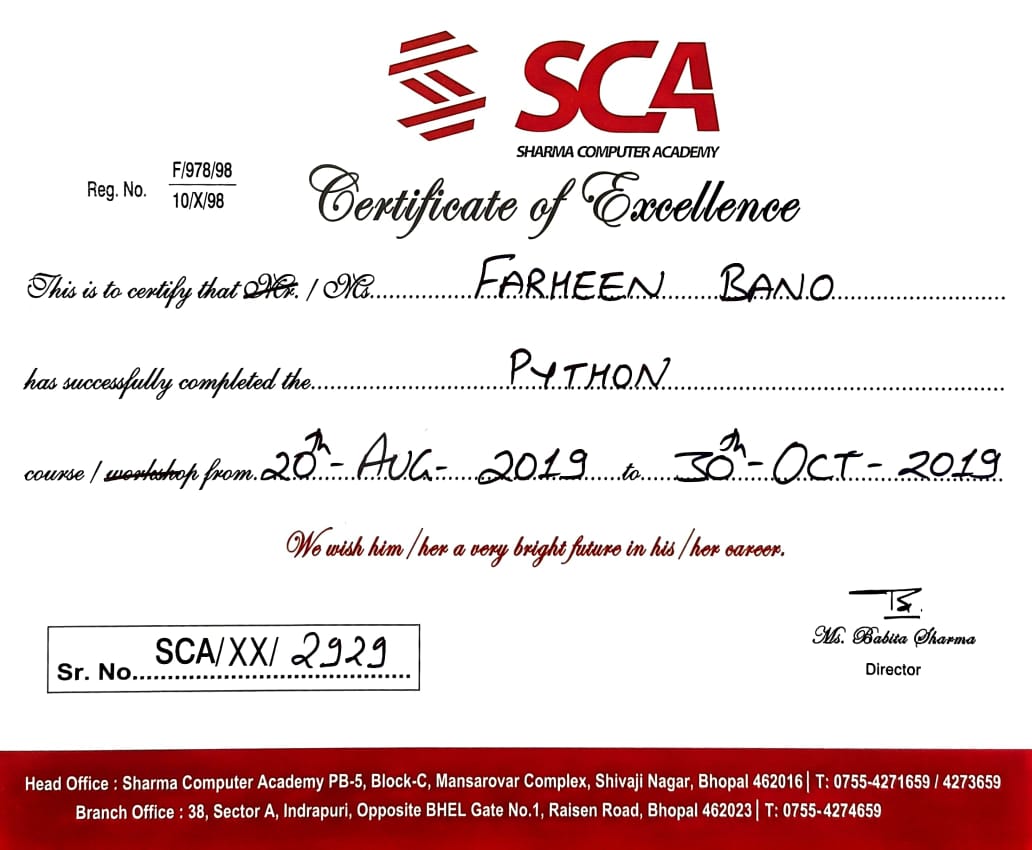 SCA
SHARMA COMPUTER ACADEMY
Reg. No. F/978/98
10/X/98
Certificate of Excellence
This is to certify that Mr. / Ms. FARHEEN BANO
has successfully completed the PYTHON
course / workshop from 20th - AUG - 2019 to 30th - OCT - 2019
We wish him / her a very bright future in his / her career.
Ms. Babita Sharma
Director
Sr. No. SCA/XX/ 2929
Head Office : Sharma Computer Academy PB-5, Block-C, Mansarovar Complex, Shivaji Nagar, Bhopal 462016 | T: 0755-4271659 / 4273659
Branch Office : 38, Sector A, Indrapuri, Opposite BHEL Gate No.1, Raisen Road, Bhopal 462023 | T: 0755-4274659